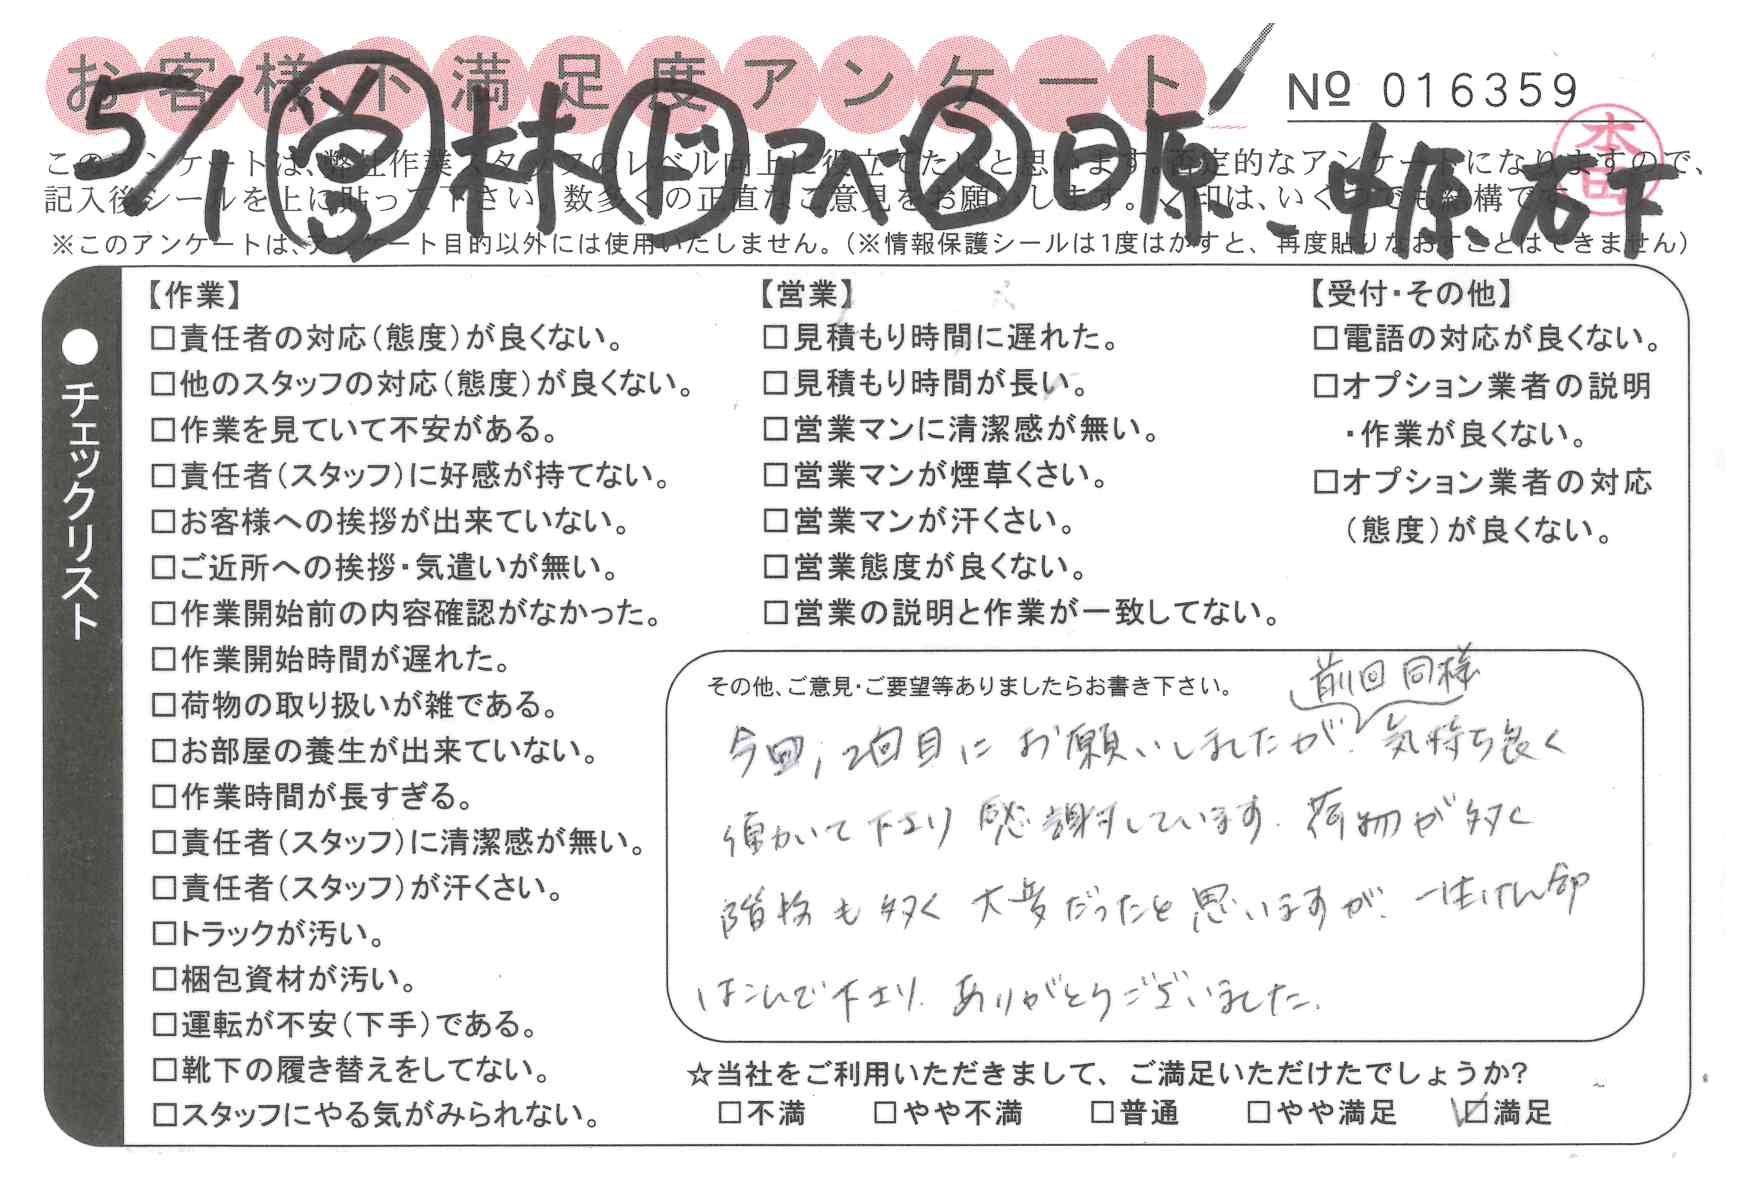 お客様不満足度アンケート
№ 016359
5/1 営 林 ド アベ ス 日原、中原、右下
本田
このアンケートは、弊社作業スタッフのレベル向上に役立てたいと思います。否定的なアンケートになりますので、
記入後シールを上に貼って下さい。数多くの正直なご意見をお願いします。✓印は、いくつでも結構です。
※このアンケートは、アンケート目的以外には使用いたしません。（※情報保護シールは1度はがすと、再度貼りなおすことはできません）
●チェックリスト
【作業】
□責任者の対応（態度）が良くない。
□他のスタッフの対応（態度）が良くない。
□作業を見ていて不安がある。
□責任者（スタッフ）に好感が持てない。
□お客様への挨拶が出来ていない。
□ご近所への挨拶・気遣いが無い。
□作業開始前の内容確認がなかった。
□作業開始時間が遅れた。
□荷物の取り扱いが雑である。
□お部屋の養生が出来ていない。
□作業時間が長すぎる。
□責任者（スタッフ）に清潔感が無い。
□責任者（スタッフ）が汗くさい。
□トラックが汚い。
□梱包資材が汚い。
□運転が不安（下手）である。
□靴下の履き替えをしてない。
□スタッフにやる気がみられない。
【営業】
□見積もり時間に遅れた。
□見積もり時間が長い。
□営業マンに清潔感が無い。
□営業マンが煙草くさい。
□営業マンが汗くさい。
□営業態度が良くない。
□営業の説明と作業が一致してない。
【受付・その他】
□電話の対応が良くない。
□オプション業者の説明
・作業が良くない。
□オプション業者の対応
（態度）が良くない。
その他、ご意見・ご要望等ありましたらお書き下さい。
前回同様
今回、2回目にお願いしましたが、気持ち良く
働いて下さり感謝しています。荷物が多く
階段も多く大変だったと思いますが、一生けん命
はこんで下さり、ありがとうございました。
☆当社をご利用いただきまして、ご満足いただけたでしょうか？
□不満 □やや不満 □普通 □やや満足 ☑満足